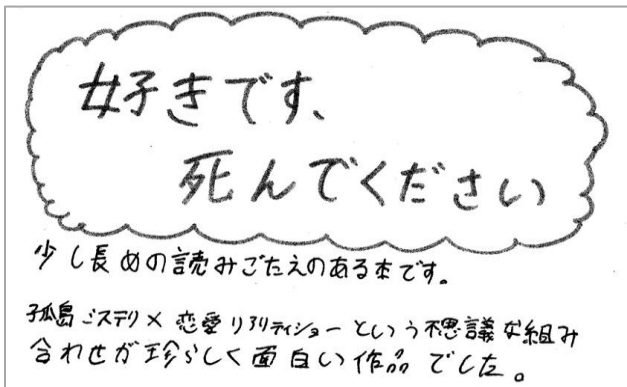 好きです、
死んでください
少し長めの読みごたえのある本です。
孤島ミステリ×恋愛リアリティショーという不思議な組み
合わせが珍らしく面白い作品でした。